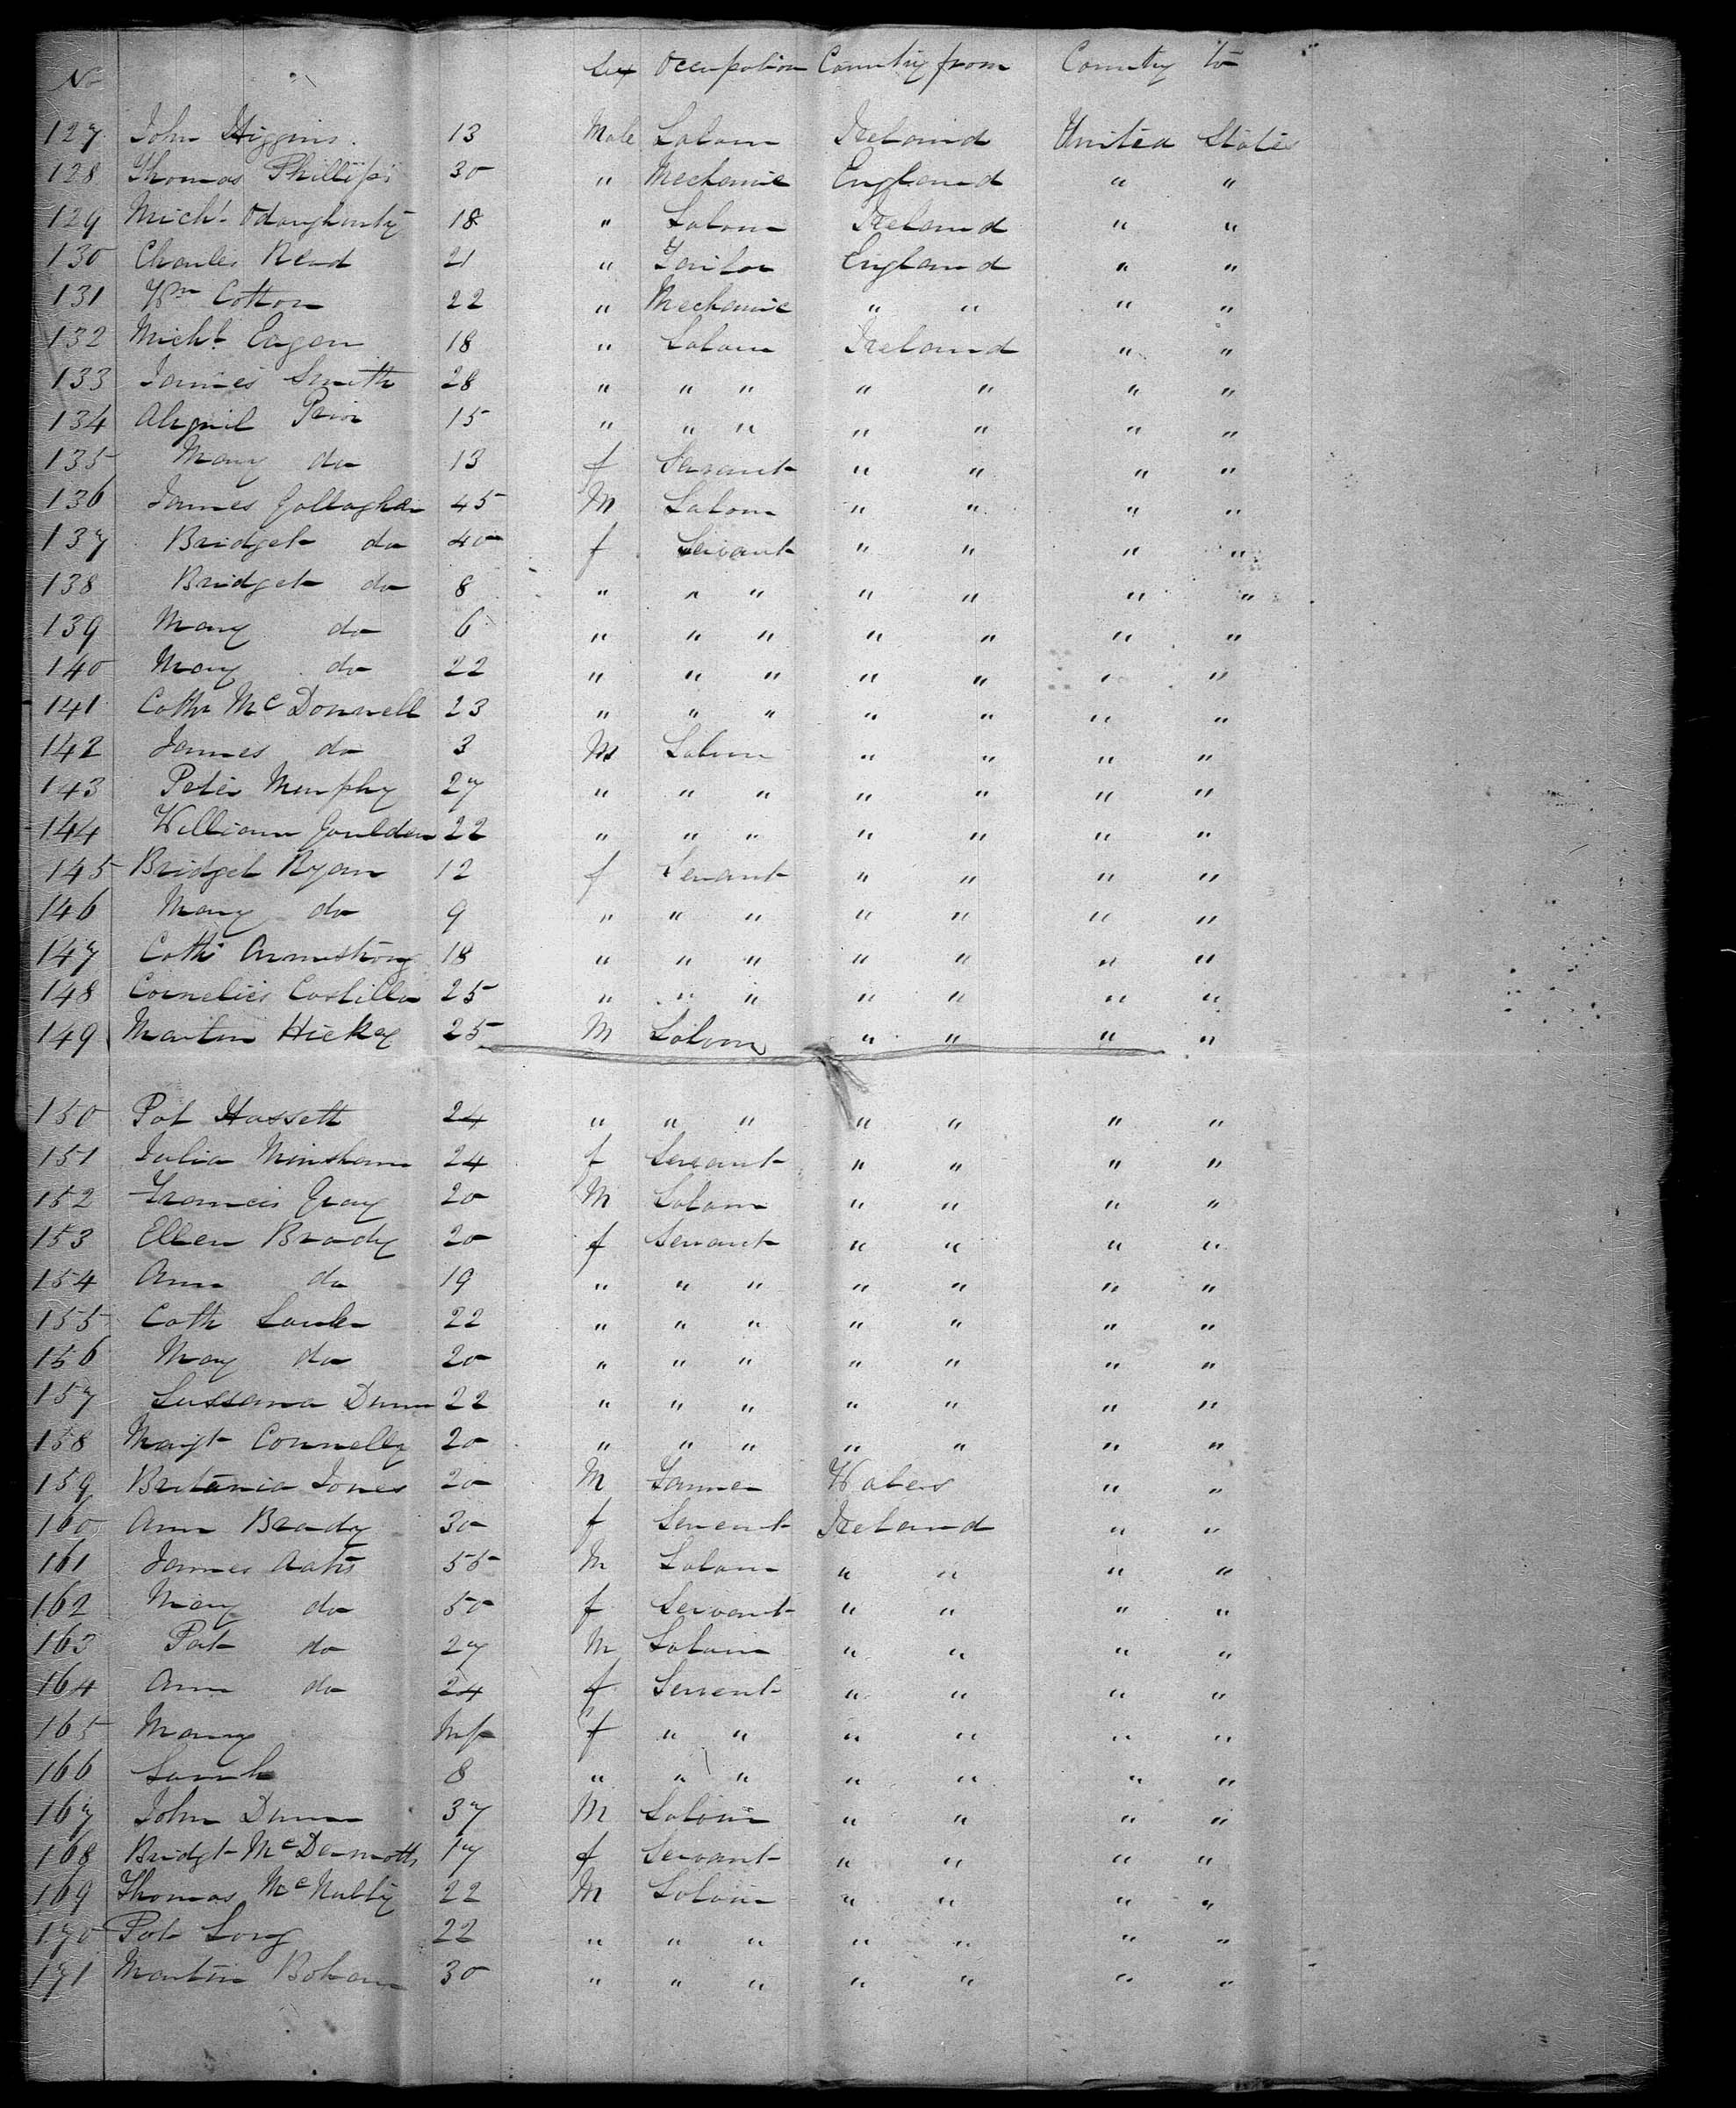 No Sex Occupation Country from Country to
127 John Higgins 13 Male Labour Ireland United States
128 Thomas Phillips 30 " Mechanic England " "
129 Michl. Odaugherty 18 " Labour Ireland " "
130 Charles Read 21 " Tailor England " "
131 Wm Cotton 22 " Mechanic " " " "
132 Michl. Eagan 18 " Labour Ireland " "
133 James Smith 28 " " " " " " "
134 15 " " " " " " "
135 Mary do 13 f Servant " " " "
136 James Gallagher 45 M Labour " " " "
137 Bridget do 40 f Servant " " " "
138 Bridget do 8 " " " " " " "
139 Mary do 6 " " " " " " "
140 Mary do 22 " " " " " " "
141 Cathr McDonnell 23 " " " " " " "
142 James do 3 M Labour " " " "
143 Peter Murphy 27 " " " " " " "
144 William Goulden 22 " " " " " " "
145 Bridget Ryan 12 f Servant " " " "
146 Mary do 9 " " " " " " "
147 Cath Armstrong 18 " " " " " " "
148 Cornelies Costillo 25 " " " " " " "
149 Martin Hickey 25 M Labour " " " "
150 Pat Hassett 24 " " " " " " "
151 Julia Minsham 24 f Servant " " " "
152 Francis Gray 20 M Labour " " " "
153 Ellen Brady 20 f Servant " " " "
154 Ann do 19 " " " " " " "
155 Cath Lawler 22 " " " " " " "
156 May do 20 " " " " " " "
157 Sussana Dunn 22 " " " " " " "
158 Magt Connelly 20 " " " " " " "
159 Britania Jones 20 M Farmer Wales " "
160 Ann Brady 30 f Servent Ireland " "
161 James 55 M Labour " " " "
162 Mary do 50 f Servant " " " "
163 Pat do 27 M Labour " " " "
164 Ann do 24 f Servent " " " "
165 Mary Inf f " " " " " "
166 Sarah 8 " " " " " " "
167 John Dunn 37 M Labour " " " "
168 Bridgt McDermott 17 f Servant " " " "
169 Thomas McNulty 22 M Labour " " " "
170 Pat Long 22 " " " " " " "
171 Martin Bohan 30 " " " " " " "